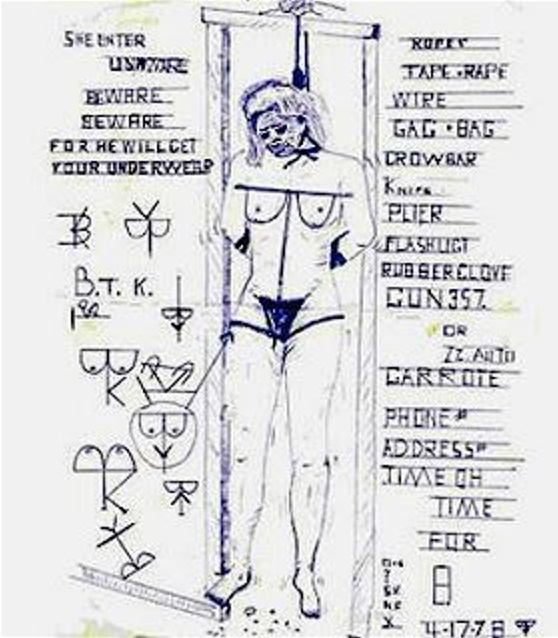 SHE ENTER
BEWARE
BEWARE
FOR HE WILL GET
YOUR UNDERWEAR
B.T.K.
TAPE • RAPE
WIRE
GAG • BAG
CROWBAR
PLIER
FLASHLIGT
RUBBER GLOVE
GUN 357
OR
22 AUTO
GARROTE
PHONE #
ADDRESS #
TIME OH
TIME
FOR
4-17-78